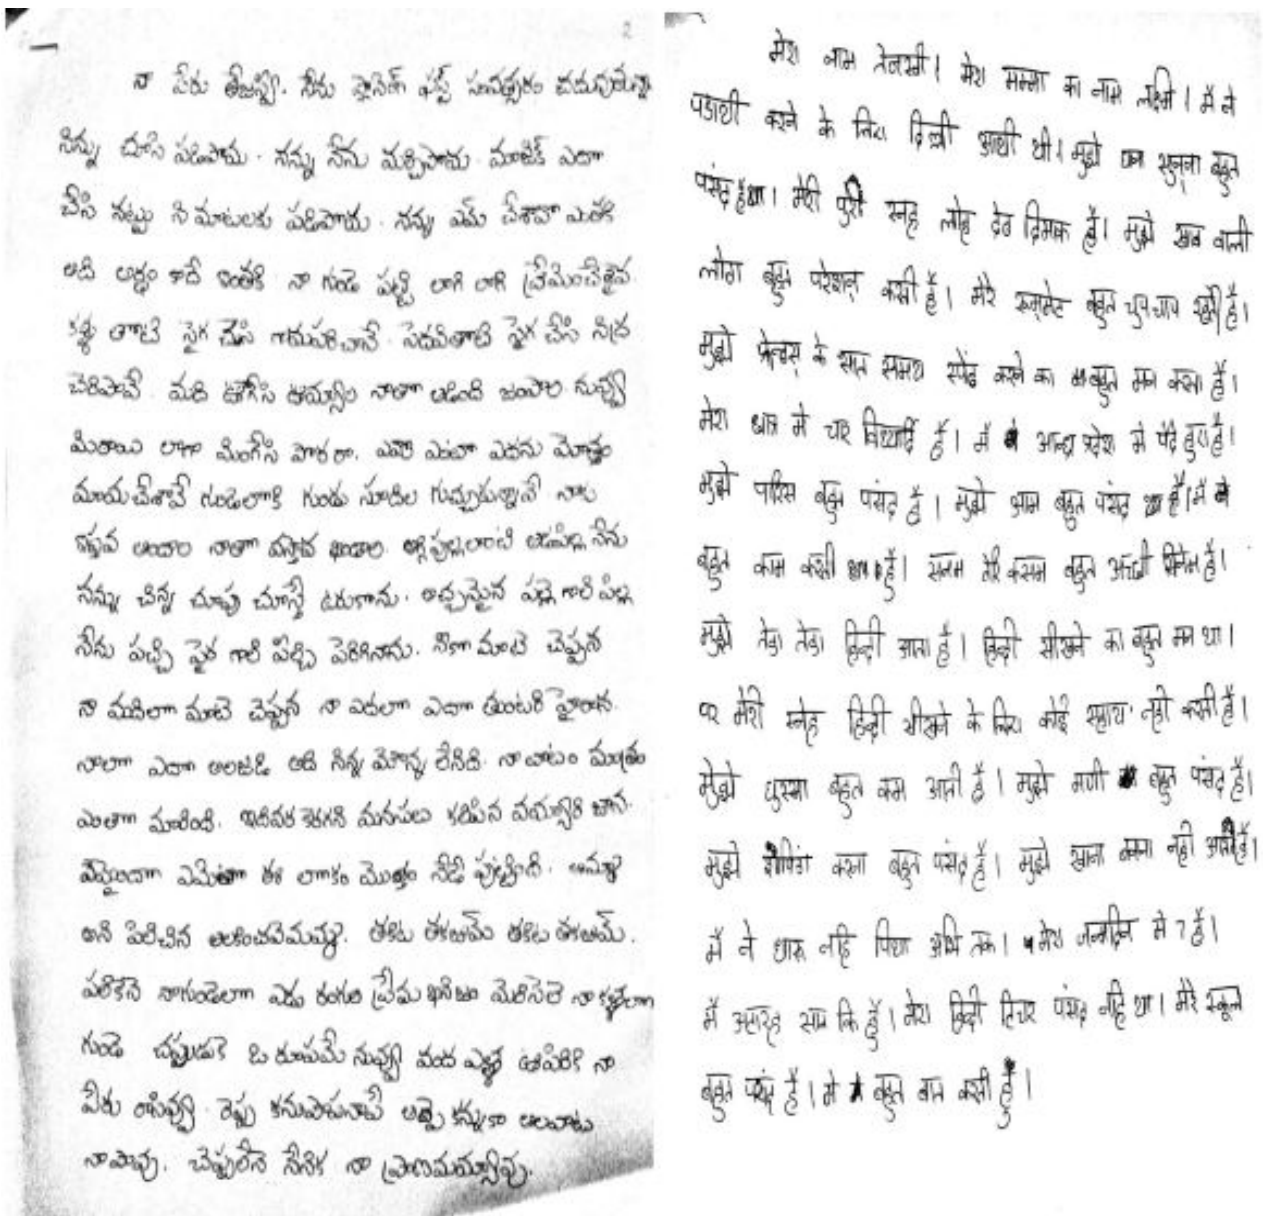 2
నా పేరు తేజస్వి. నేను ఫస్ట్ సంవత్సరం చదువుతున్నా
నిన్ను చూసి పడిపోయ. నన్ను నేను మర్చిపోయ. మాజిక్ ఎదో
చేసి నట్టు ని మాటలకు పడిపోయ. నన్ను ఎమ్ చేశావో ఎంతకి
అది అర్థం కాదే ఇంతకి నా గుండె పట్టి లాగి లాగి
కళ్ళ తోటి సైగ చేసి. పెదవితోటి సైగ చేసి నిద్ర
చెరిపావే. మది ఊగేసి ఊయ్యాల నాతో ఆడింది జంపాల నువ్వు
మిఠాయి లాగా మింగేసి పోకరా. ఎదను మొత్తం
మాయచేశావే గుండెలోకి గుండు సూదిల గుచ్చుకున్నావే నాకు
అందాల నాతో వస్తావ అగ్గిపుల్లలాంటి ఆడపిల్ల నేను
నన్ను చిన్న చూపు చూస్తే ఊరుకోను. అచ్చమైన పల్లె గాలి పిల్ల
నేను పచ్చి పైర గాలి పీల్చి పెరిగినాను. నీకో మాట చెప్పన
నా మదిలో మాట చెప్పన నా ఎదలో ఎదో తుంటరి హైరాన.
నాలో ఎదో అలజడి అది నిన్న మొన్న లేనిది. నా వాటం మొత్తం
ఎంతో మారింది. ఇదివరకెరగని మనసులు కలిపిన వయ్యారి జాన.
ఎమిటో ఈ లోకం మొత్తం నేడే పుట్టింది. అమ్మా
అని పిలిచిన ఆలకించవేమమ్మ. తకిట తకజుమ్ తకిట తకజుమ్.
పలికెనే నాగుండెలో ఎడు రంగుల ప్రేమ మెరిసెలె నా కళ్ళలో
గుండె చప్పుడుకె ఓ రూపమే నువ్వు వంద ఎళ్ళ ఊపిరికి నా
పేరు రాసివ్వు. రెప్ప కనుపాపనాపే
చెప్పలేనే నేనిక నా ప్రాణమయ్యావు.
मेरा नाम तेजस्वी। मेरा मम्मा का नाम लक्ष्मी। मैं ने
पडाथी करने के लिए दिल्ली आथी थी। मुझे सुनना बहुत
पसंद था। मेरी स्नेह लोह दिमक है। मुझे वाली
लोग बहुत परेशन् कर्सी है। मेरे रूम्मेट बहुत चुपचाप है।
मुझे फ्रेन्डस् के सात समय स्पेंड करने का बहुत मन कर्सा है।
मेरा मे चार विध्यार्दि है। मैं आन्ध्रा प्रदेश मे पैदे हुए है।
मुझे पारिस बहुत पसंद है। मुझे आम बहुत पसंद है। मैं
बहुत काम कर्सी है। सनम तेरि कसम बहुत अच्ची है।
मुझे तेडा तेडा हिन्दी आता है। हिन्दी सीखने का बहुत मन था।
पर मेरी स्नेह हिन्दी सीखने के लिए कोई सहाय नहीं कर्सी है।
मुझे घुस्सा बहुत कम आती है। मुझे मणी बहुत पसंद है।
मुझे शापिंग करना बहुत पसंद है। मुझे खाना बनना नही आती है।
मैं ने नहि पिया अभि तक। मेरा जन्मदिन मे 7 है।
मैं साल कि हूँ। मेरा हिन्दी टिचर पसंद नहि था। मेरे स्कूल
बहुत पसंद है। मे बहुत बात कर्सी हूँ।